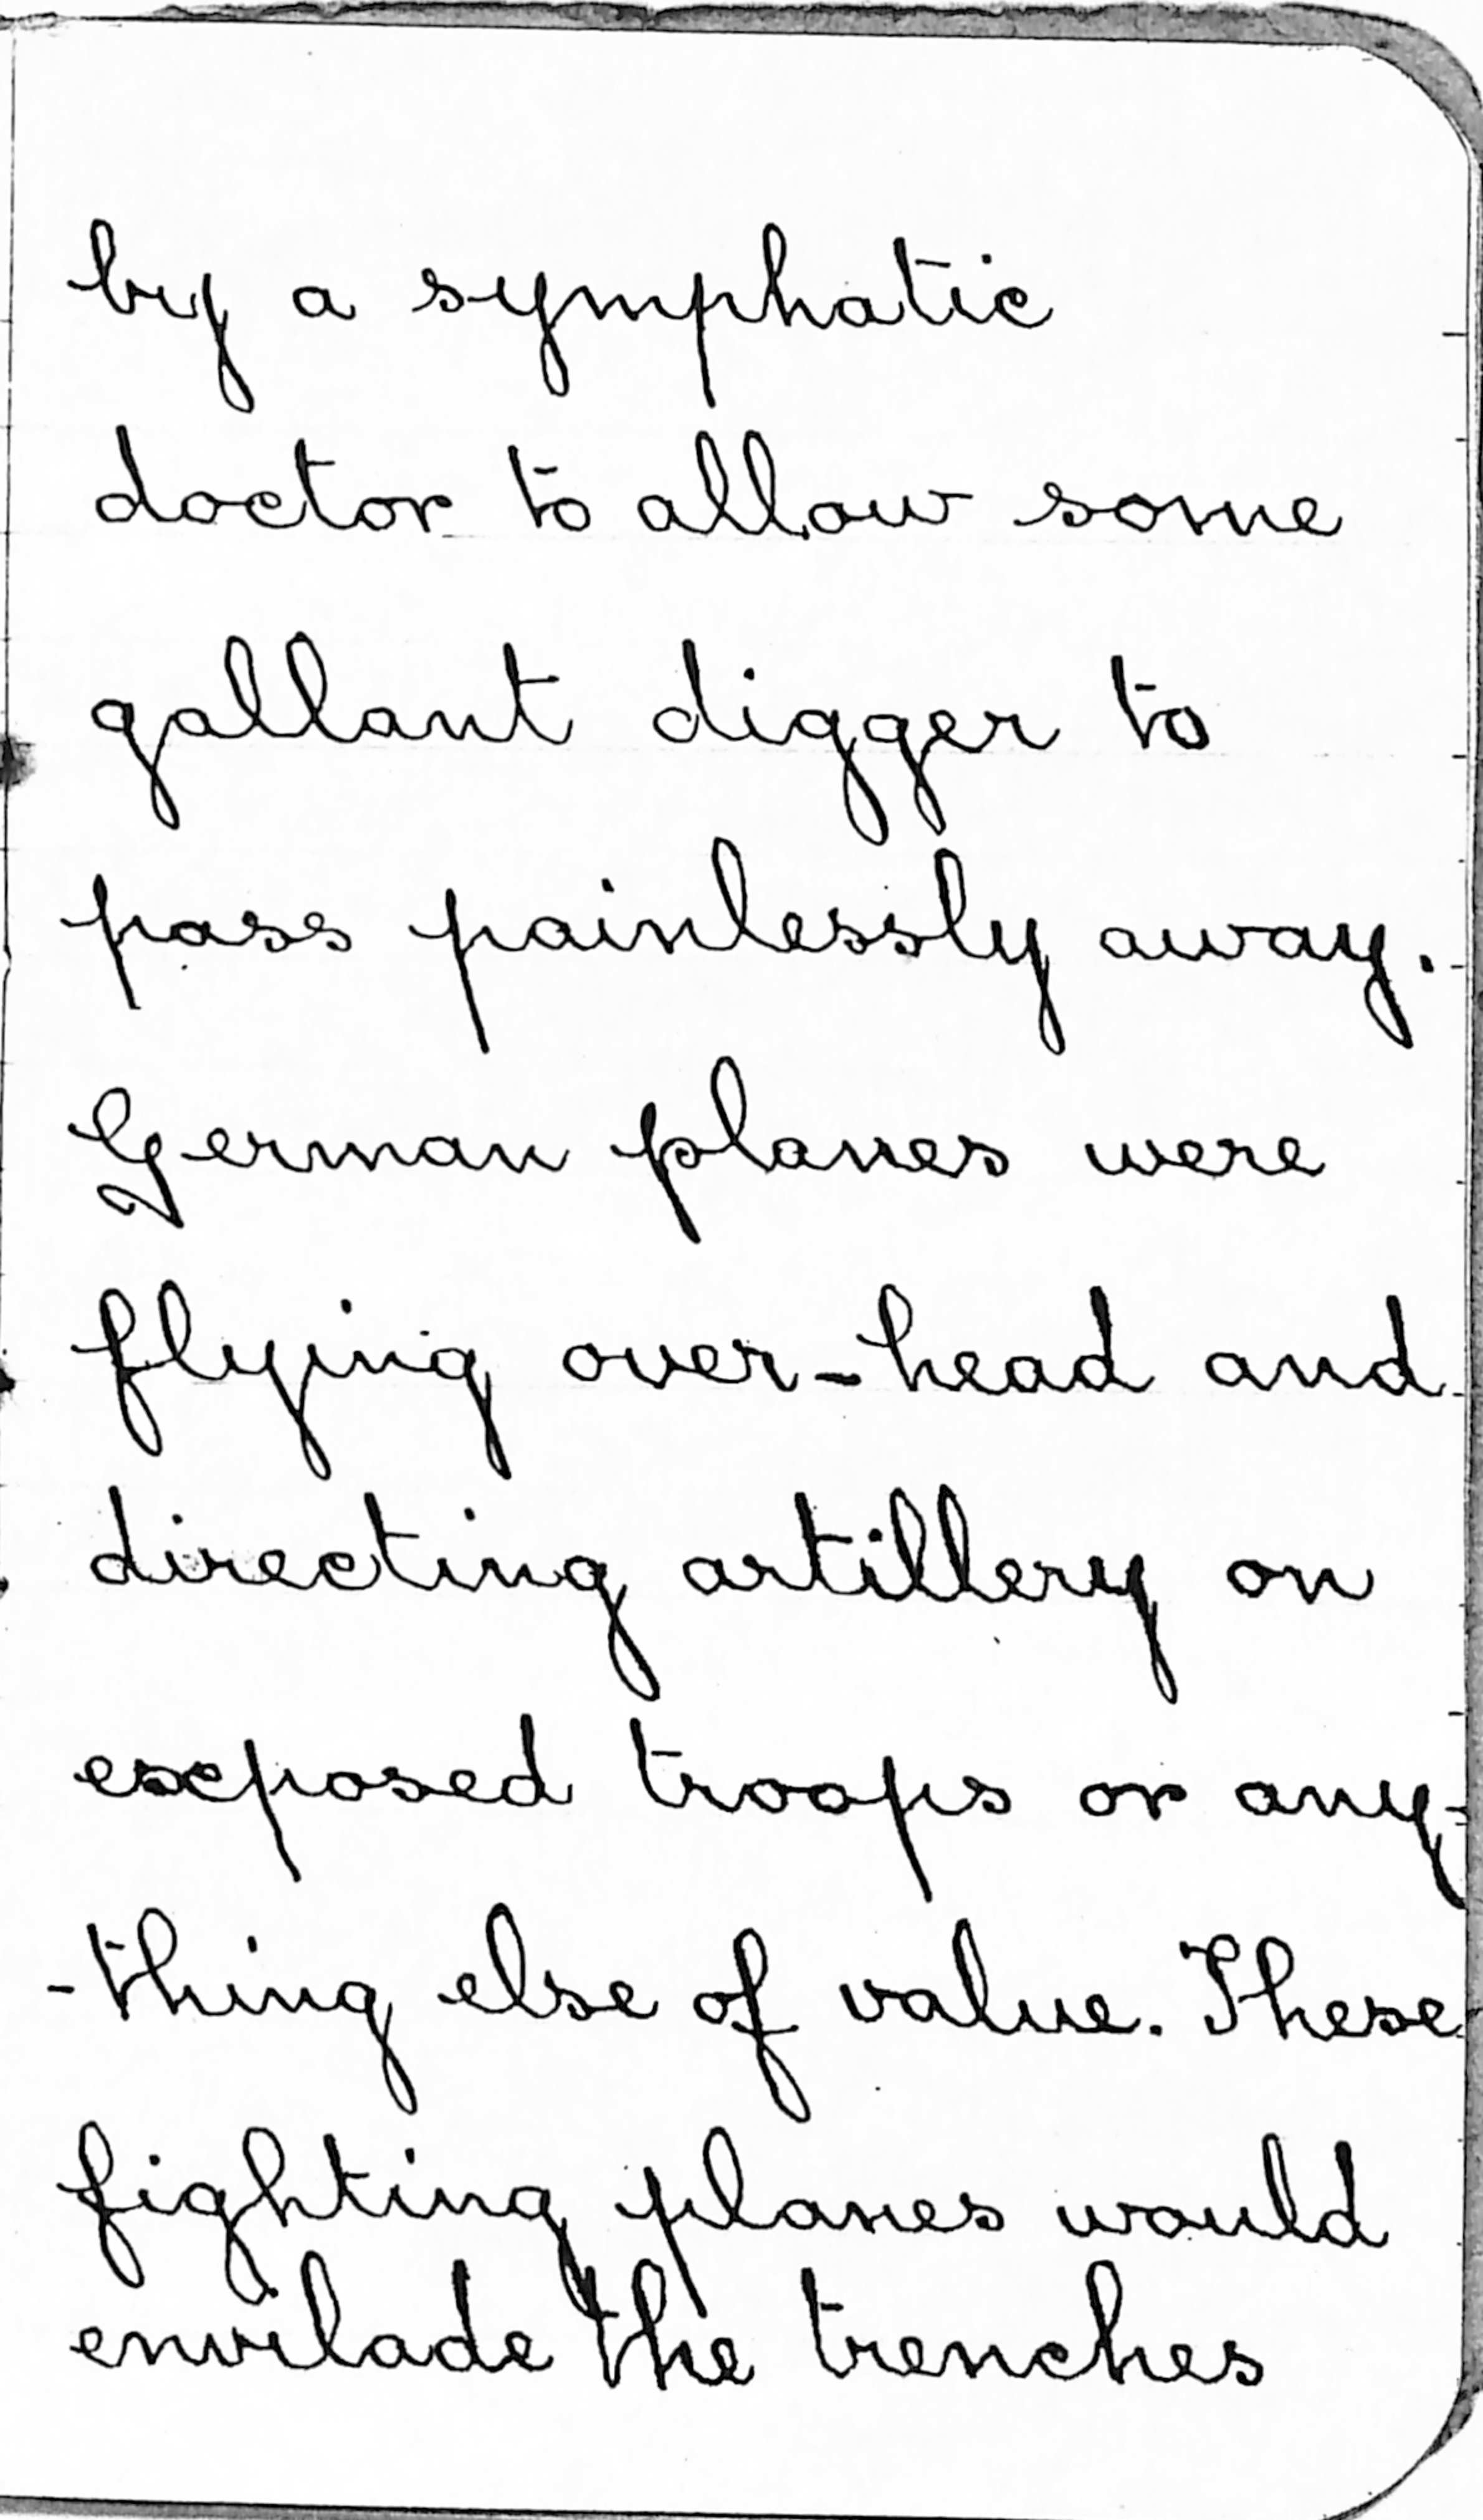 by a symphatic
doctor to allow some
gallant digger to
pass painlessly away.
German planes were
flying over-head and
directing artillery on
exposed troops or any-
-thing else of value. These
fighting planes would
envilade the trenches